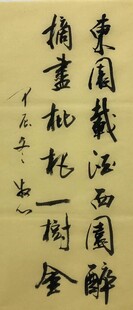 東園載酒西園醉
摘盡枇杷一樹金